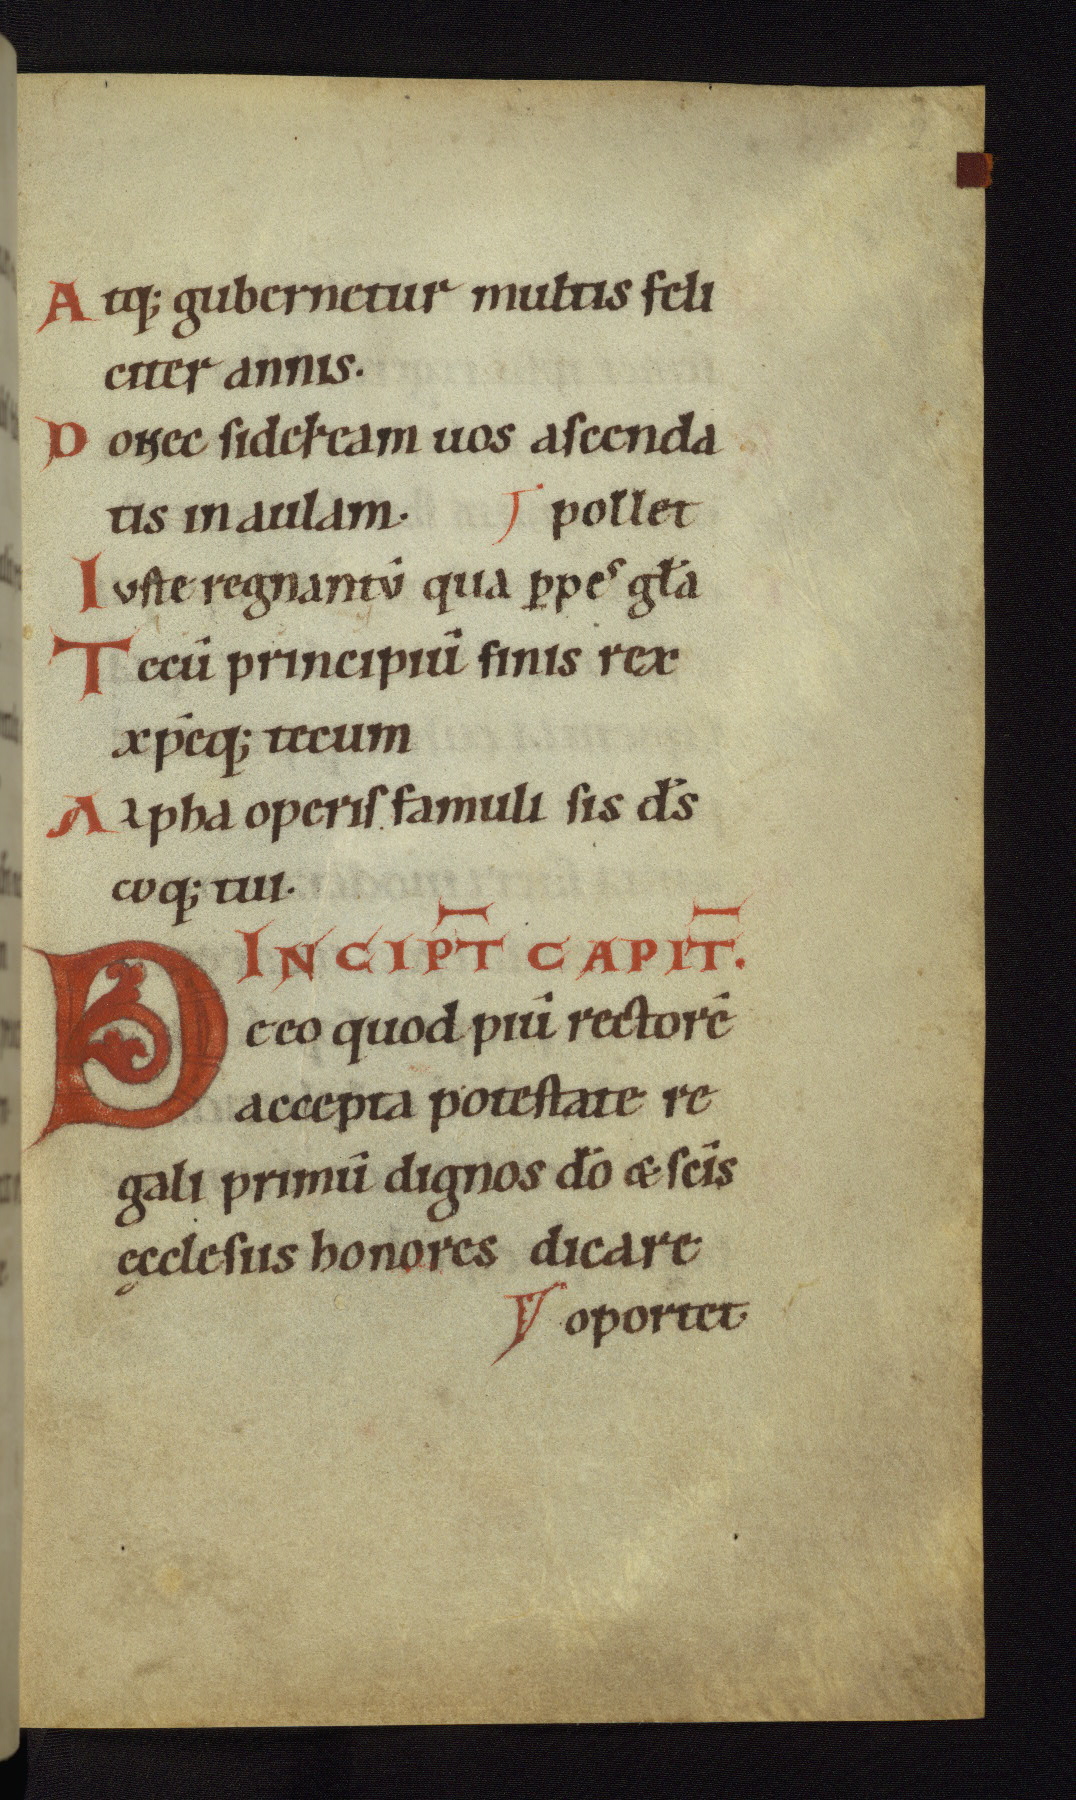 Atq; gubernetur multis feli
citer annis.
Donec sideream uos ascenda
tis in aulam. pollet
Iuste regnantū qua ꝑpes gła
Tecū principiū finis rex
xp̄eq; tecum
Alpha operis famuli sis dš
cωq; tui.
INCIPT̄ CAPIT̄.
De eo quod piū rectorē
accepta potestate re
gali primū dignos do̅ & sc̄is
ęcclesiis honores dicare
oportet